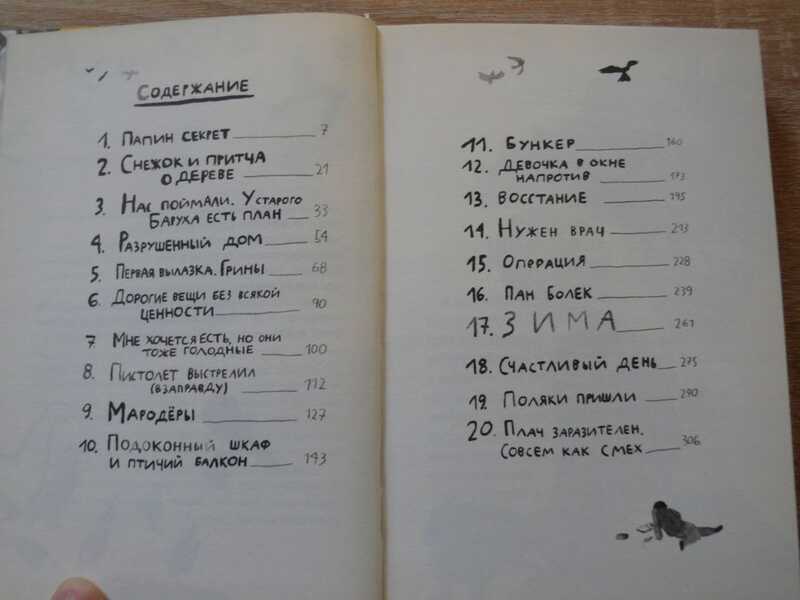 Содержание
1. Папин секрет 7
2. Снежок и притча
о дереве 21
3 Нас поймали. У старого
Баруха есть план 33
4. Разрушенный дом 54
5. Первая вылазка. Грины 68
6. Дорогие вещи без всякой
ценности 90
7 Мне хочется есть, но они
тоже голодные 100
8. Пистолет выстрелил
(взаправду) 112
9. Мародёры 127
10. Подоконный шкаф
и птичий балкон 143
11. Бункер 160
12. Девочка в окне
напротив 173
13. Восстание 195
14. Нужен врач 213
15. Операция 228
16. Пан Болек 239
17. Зима 261
18. Счастливый день 275
19. Поляки пришли 290
20. Плач заразителен.
Совсем как смех 306